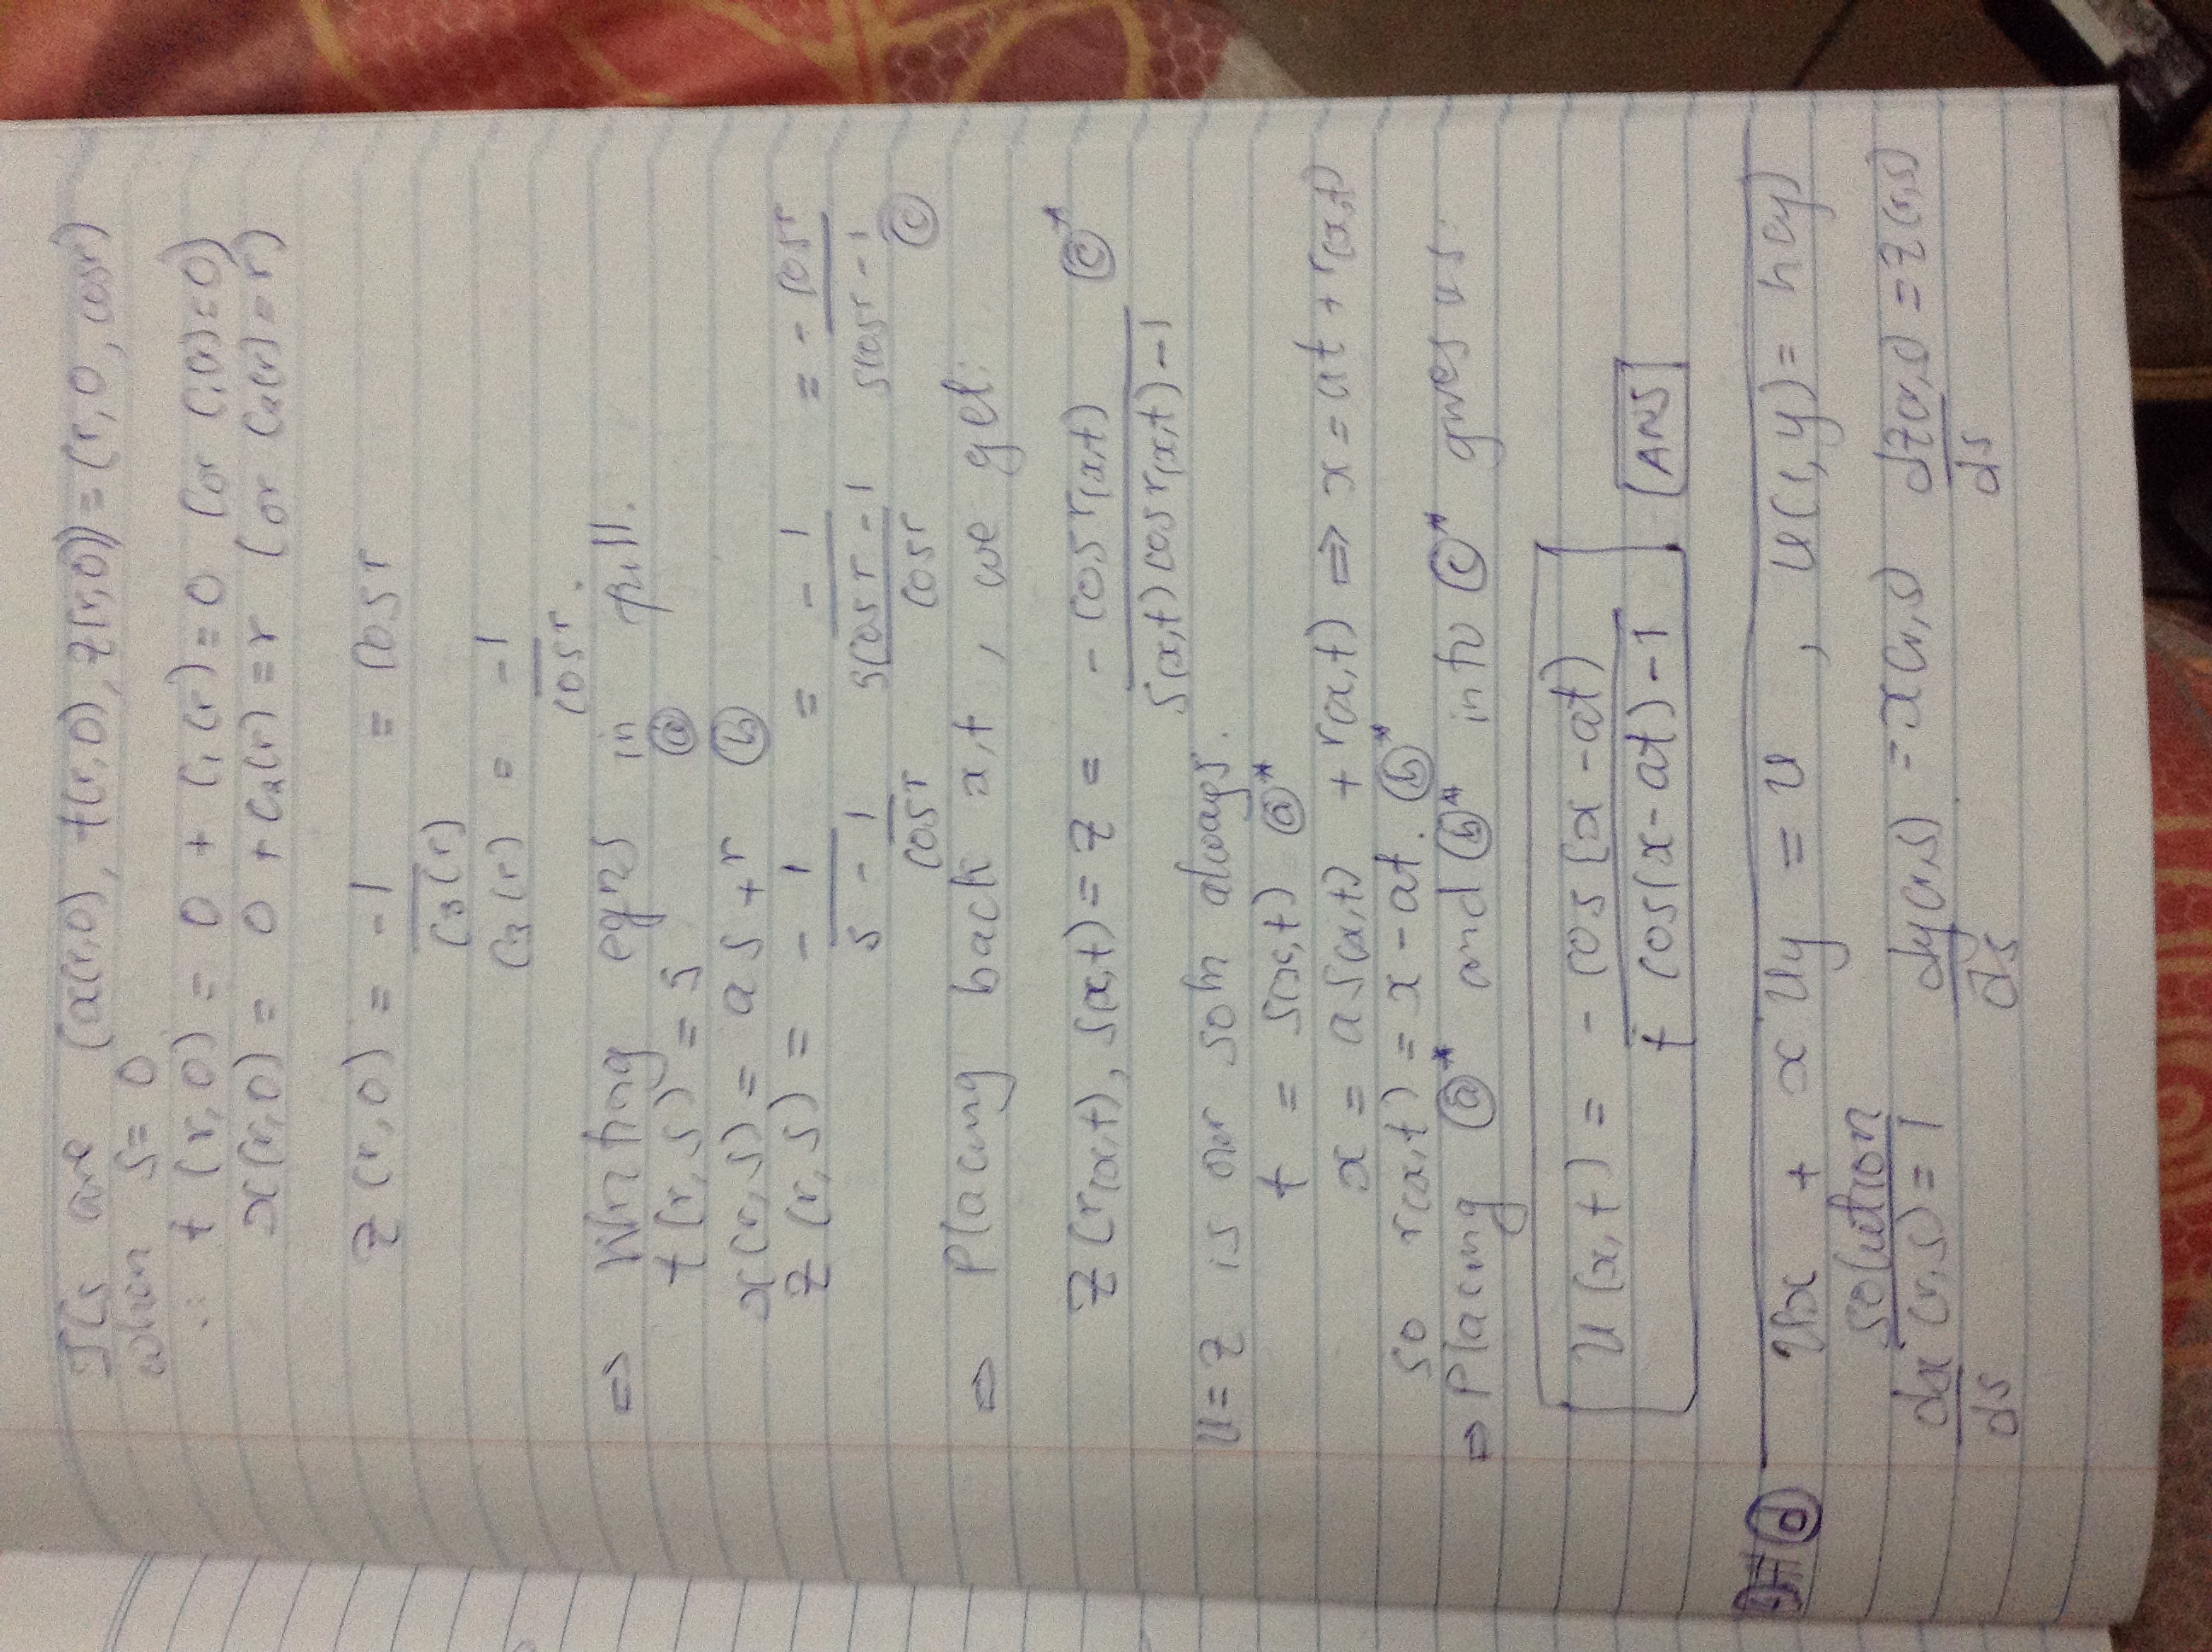 ICs are (x(r,0), t(r,0), z(r,0)) = (r,0,cosr)
when s=0
∴ t(r,0) = 0 + C₁(r) = 0 (or C₁(r)=0)
x(r,0) = 0 + C₂(r) = r (or C₂(r) = r)
z(r,0) = -1/C₃(r) = cosr
C₃(r) = -1/cosr.
⇒ Writing eqns in full.
t(r,s) = s ⓐ
x(r,s) = as + r ⓑ
z(r,s) = - 1/(s - 1/cosr) = - 1/((scosr - 1)/cosr) = - cosr/(scosr - 1) ⓒ
⇒ Placing back x,t, we get:
z(r(x,t), s(x,t)) = z = - cosr(x,t)/(s(x,t)cosr(x,t) - 1) ⓒ*
u=z is our soln always.
t = s(x,t) ⓐ*
x = as(x,t) + r(x,t) ⇒ x = at + r(x,t)
so r(x,t) = x - at. ⓑ*
⇒ Placing ⓐ* and ⓑ* into ⓒ* gives us:
u(x,t) = - cos(x - at)/(t cos(x - at) - 1) [ANS]
ⓓ ux + xuy = u , u(1,y) = h(y)
solution
dx(r,s)/ds = 1 dy(r,s)/ds = x(r,s) dz(r,s)/ds = z(r,s)